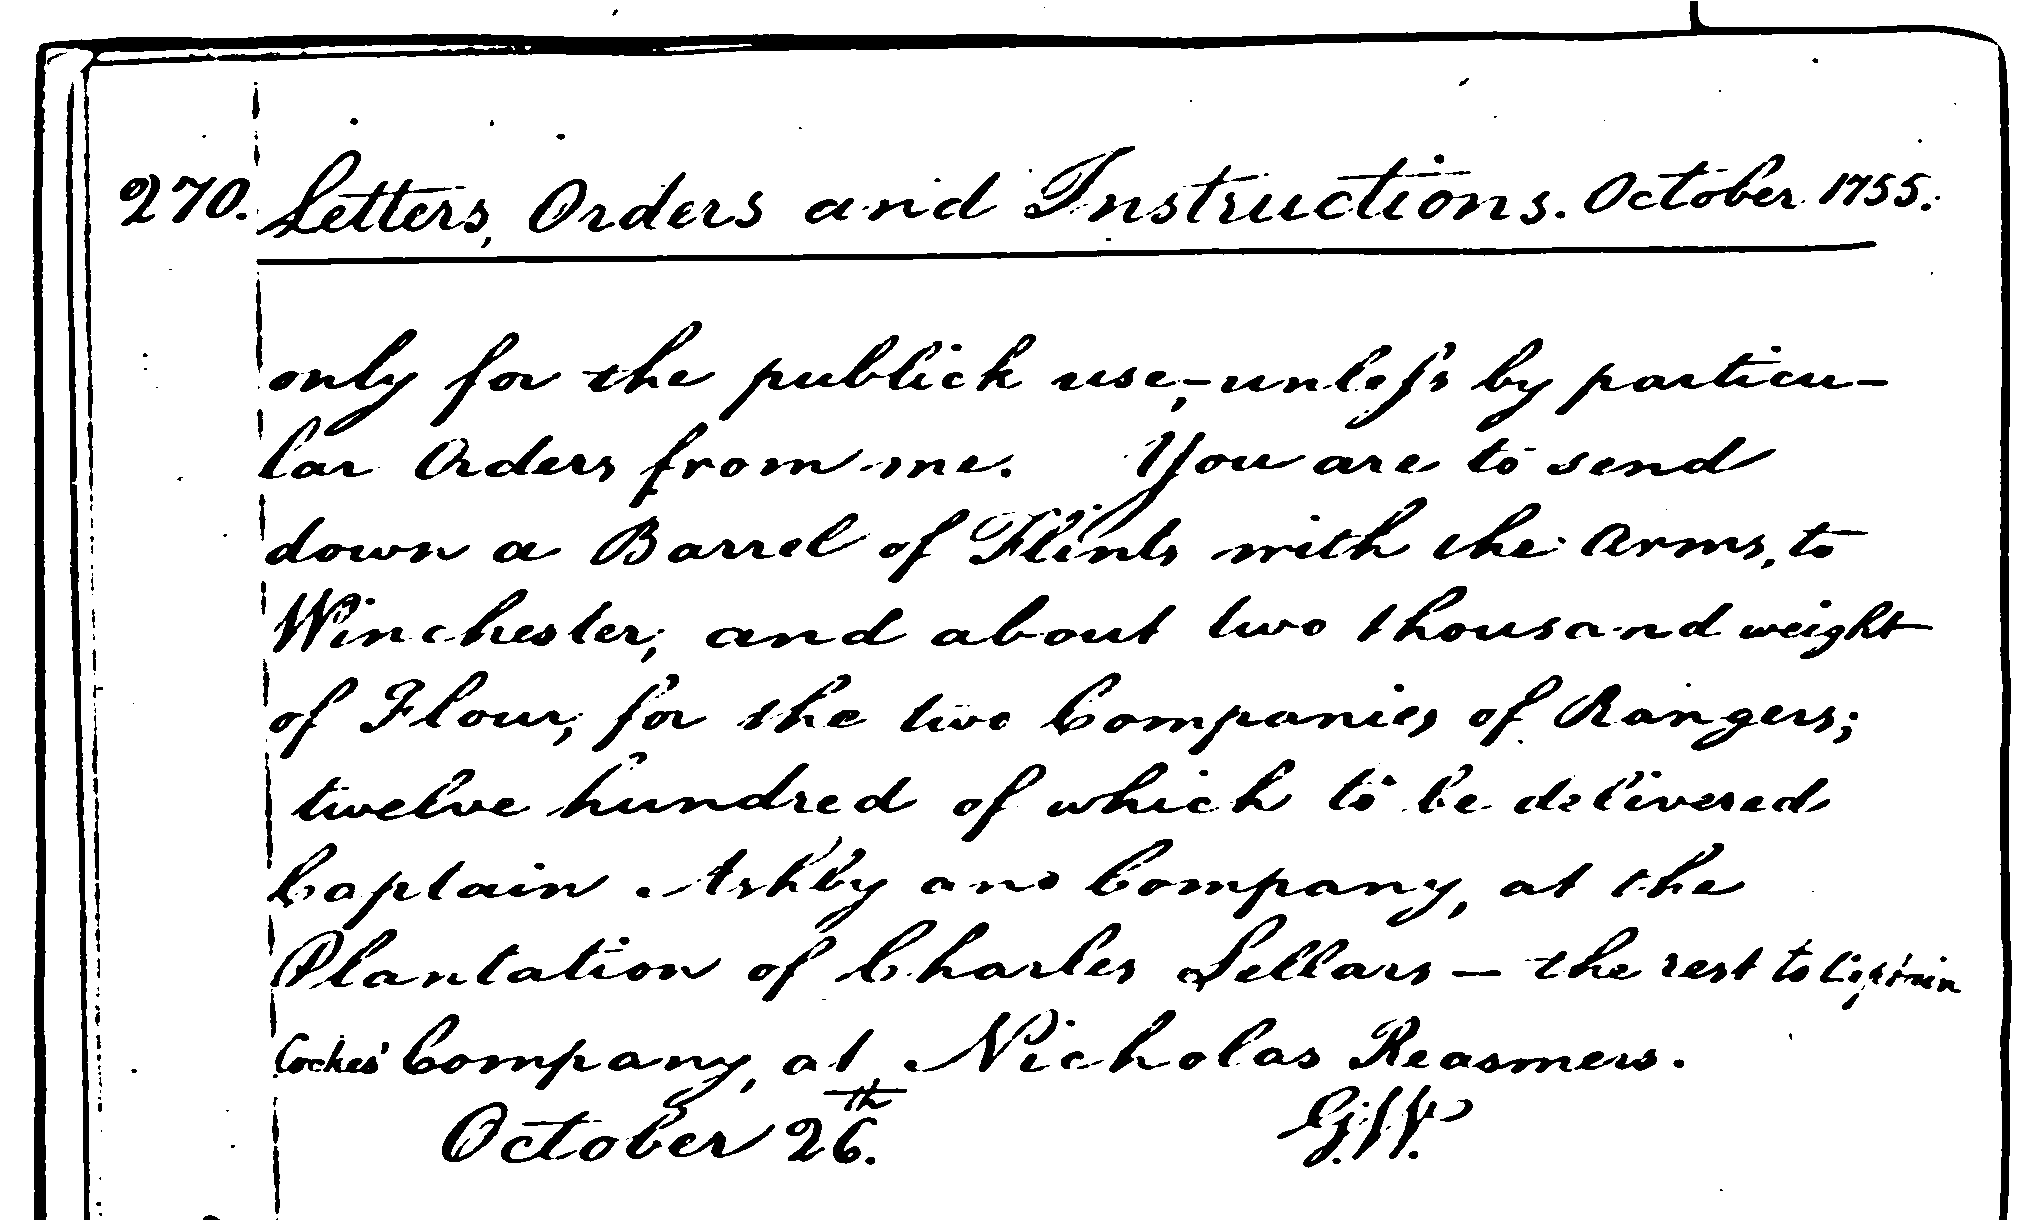 270. Letters, Orders and Instructions. October 1755.
only for the publick use,-unless by particu-
lar Orders from me. You are to send
down a Barrel of Flints with the Arms, to
Winchester, and about two thousand weight
of Flour, for the two Companies of Rangers;
twelve hundred of which to be delivered
Captain Ashby and Company, at the
Plantation of Charles Sellars — the rest to Captain
Cockes' Company, at Nicholas Reasmers.
October 26.th G.W.